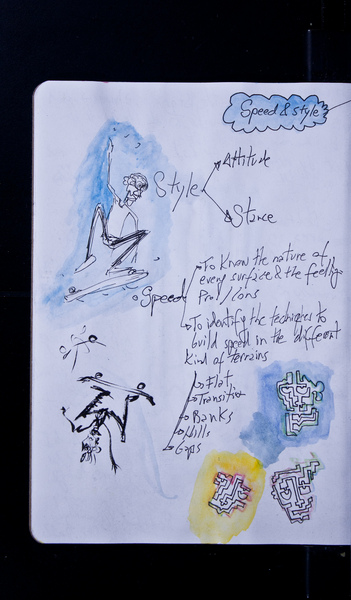 Speed & style
Style
Attitude
Stance
Speed
To know the nature of
every surface & the feeling
Pro / Cons
To identify the techniques to
build speed in the different
kind of terrains
Flat
Transition
Banks
Hills
Gaps